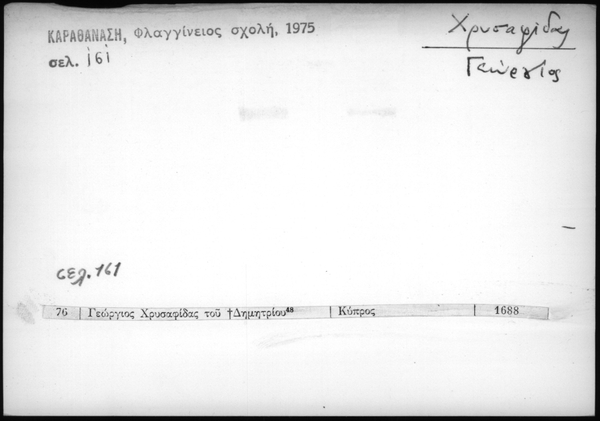 ΚΑΡΑΘΑΝΑΣΗ, Φλαγγίνειος σχολή, 1975
σελ. 161
Χρυσαφίδας
Γεώργιος
σελ. 161
76 | Γεώργιος Χρυσαφίδας τοῦ †Δημητρίου⁴⁸ | Κύπρος | 1688